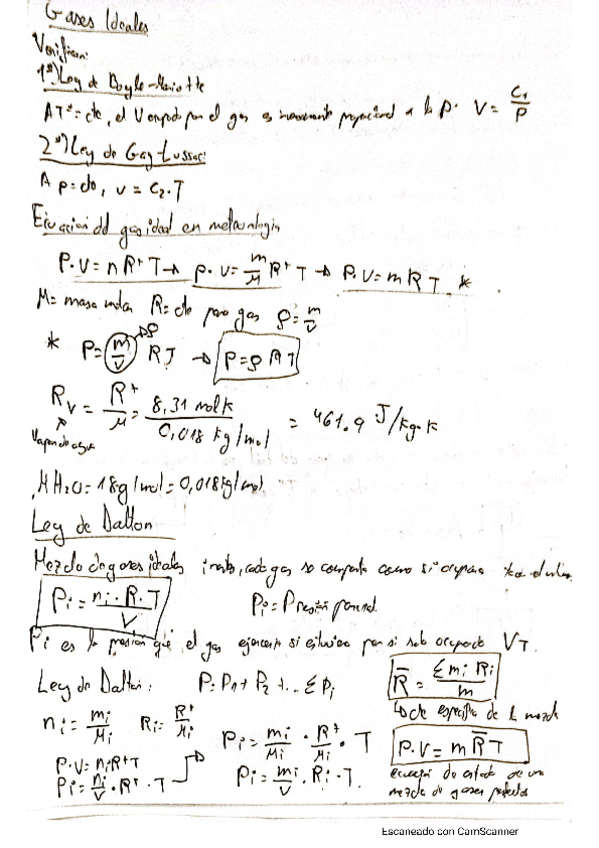 Gases Ideales
Verifican:
1º) Ley de Boyle-Mariotte
A Tª = cte, el V ocupado por el gas es inversamente proporcional a la p. V = C₁/P
2º) Ley de Gay-Lussac:
A p = cte, v = C₂·T
Ecuación del gas ideal en meteorología
P·V = n R* T → p·V = m/M R* T → P·V = m R T. *
M = masa molar R = cte para gas ρ = m/V
* P = (m/V) → ρ R T → P = ρ R T
Rv = R*/M = 8,31 mol K / 0,018 kg/mol = 461.9 J/kg·K
Vapor de agua
M H₂O = 18g/mol = 0,018kg/mol
Ley de Dalton
Mezcla de gases ideales inertes, cada gas se comporta como si ocupara
Pi = ni·R·T / V Pi = Presión parcial
Pi es la presión que el gas ejercería si estuviera por si solo ocupando VT.
Ley de Dalton: P = P₁ + P₂ + ... Σ Pi R̄ = Σ mi Ri / m
↳ cte específica de la mezcla
ni = mi/Mi Ri = R*/Mi Pi = mi/Mi · R*/Mi · T P·V = m R̄ T
P·V = ni R* T
Pi = ni/V · R* · T Pi = mi/V · Ri · T.
ecuación de estado de una
mezcla de gases perfectos
Escaneado con CamScanner